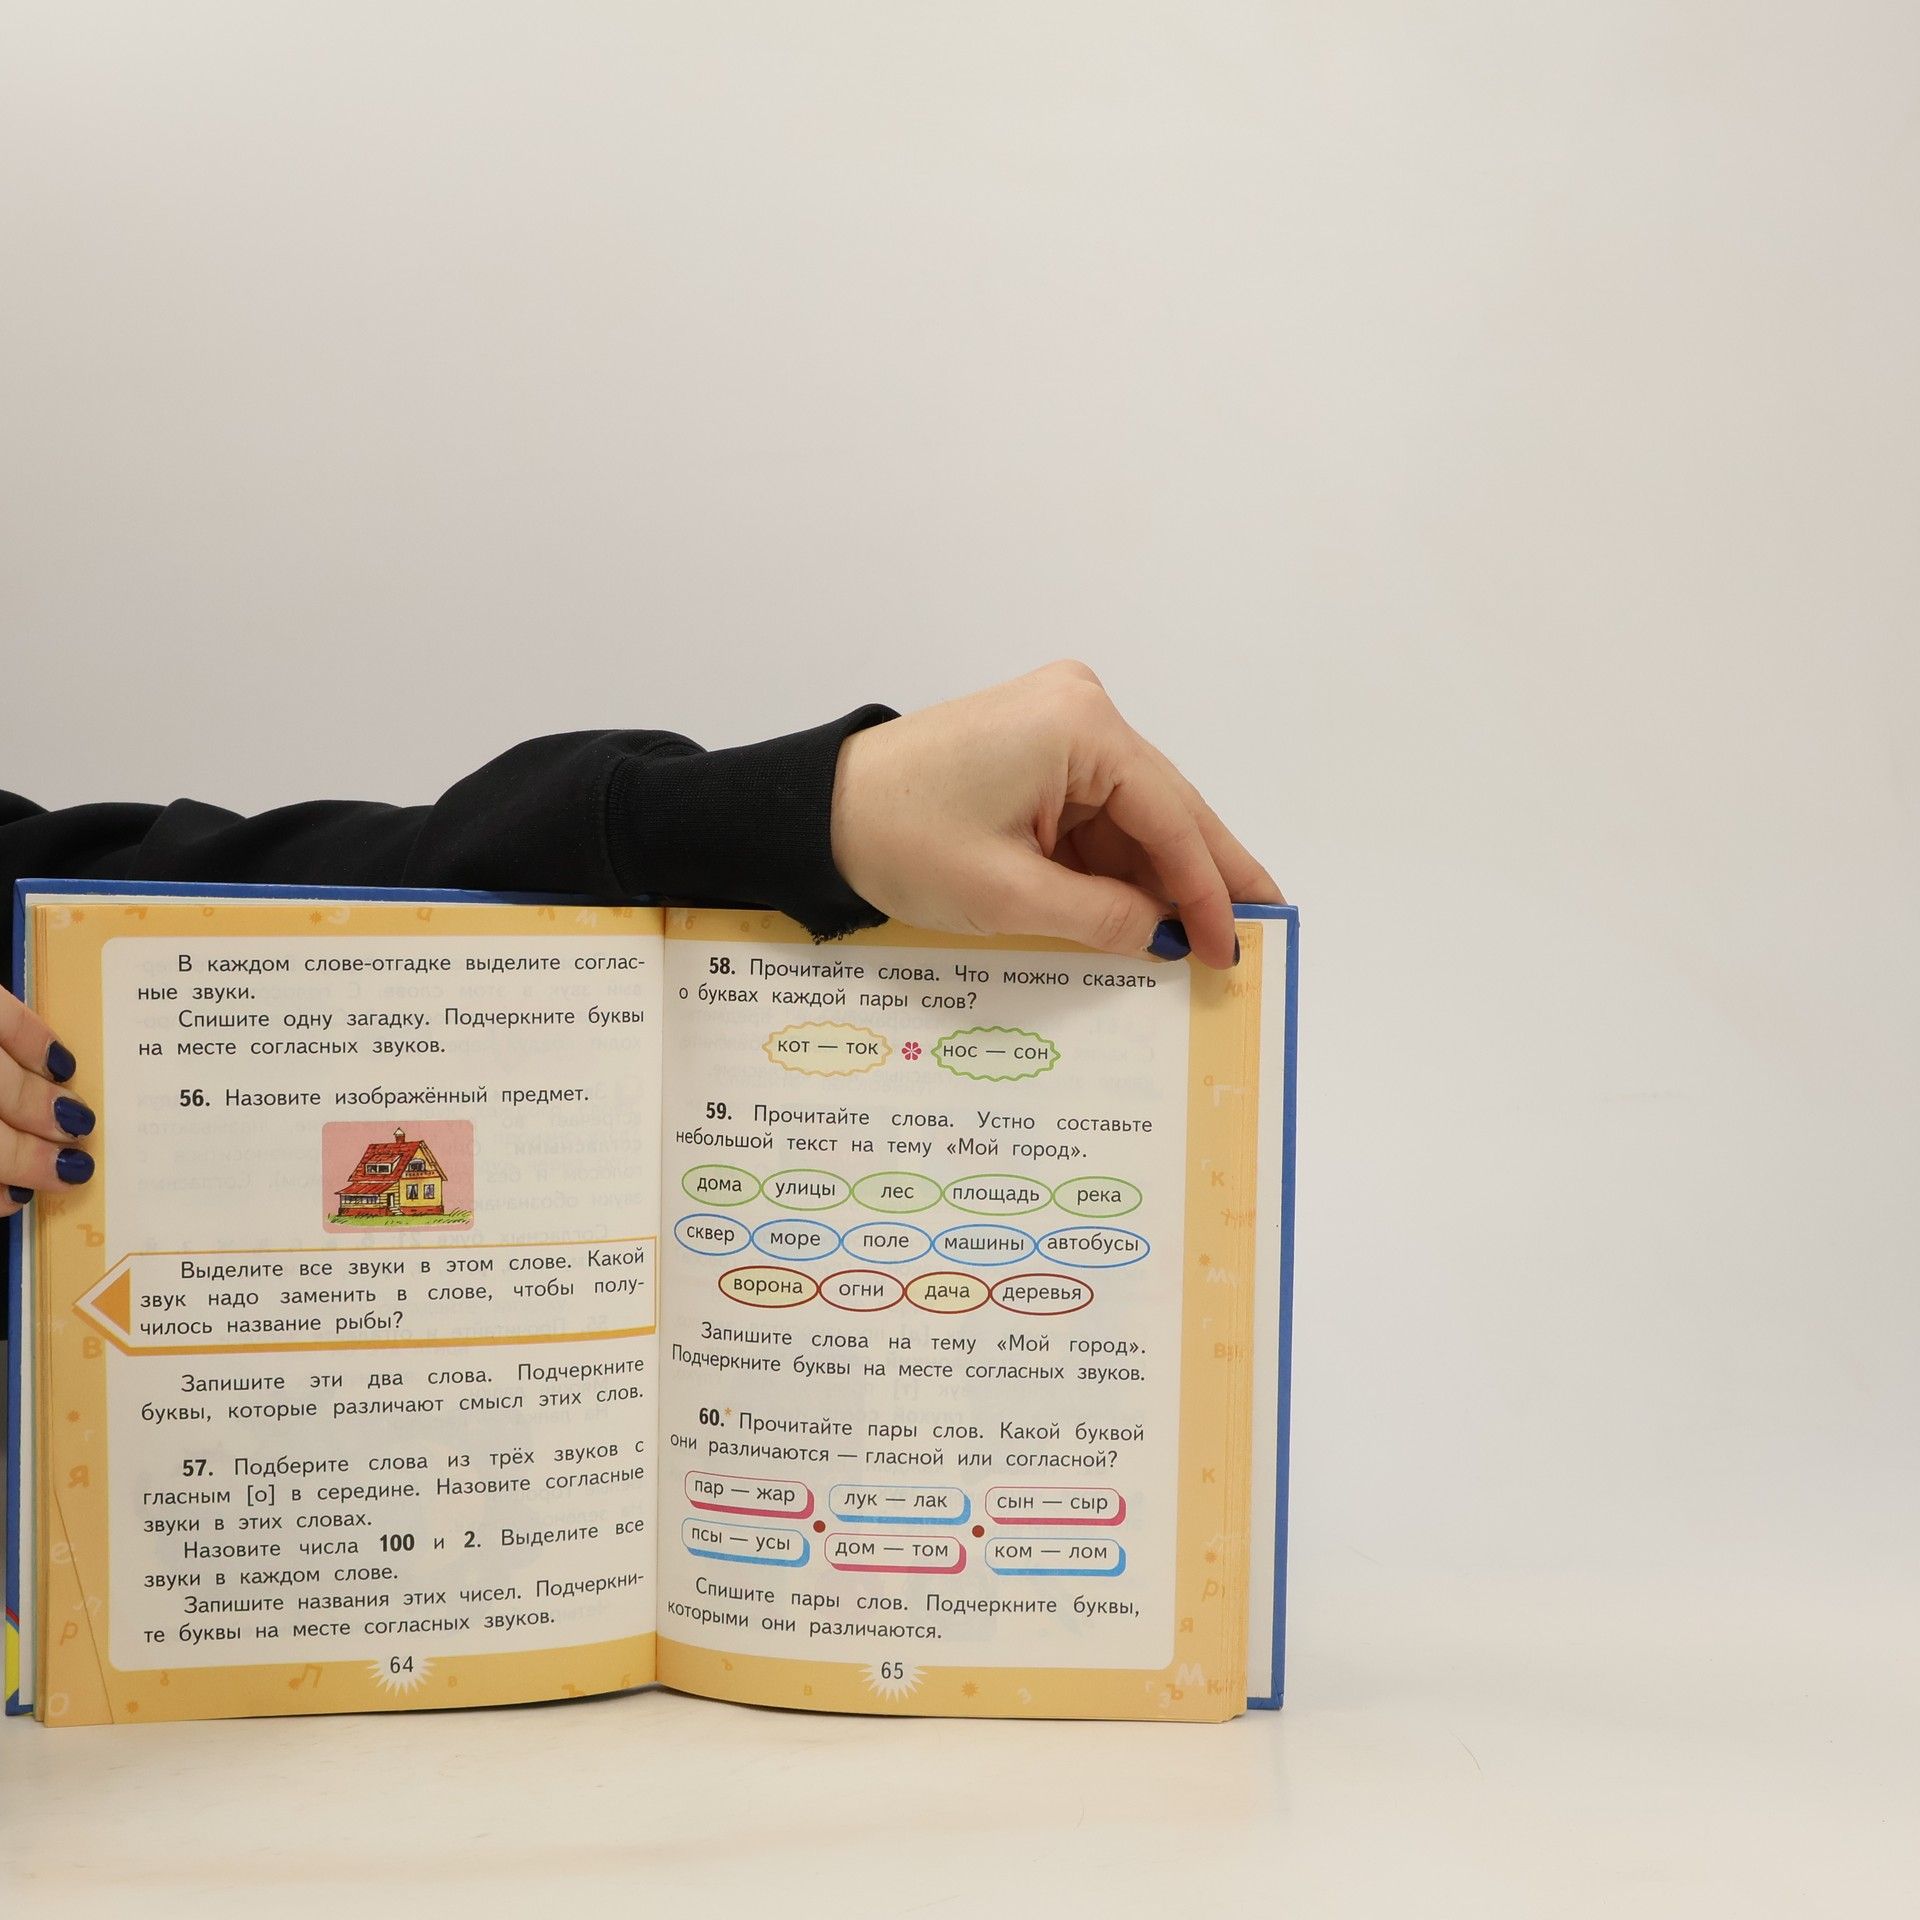 В каждом слове-отгадке выделите соглас-
ные звуки.
Спишите одну загадку. Подчеркните буквы
на месте согласных звуков.
56. Назовите изображённый предмет.
Выделите все звуки в этом слове. Какой
звук надо заменить в слове, чтобы полу-
чилось название рыбы?
Запишите эти два слова. Подчеркните
буквы, которые различают смысл этих слов.
57. Подберите слова из трёх звуков с
гласным [о] в середине. Назовите согласные
звуки в этих словах.
Назовите числа 100 и 2. Выделите все
звуки в каждом слове.
Запишите названия этих чисел. Подчеркни-
те буквы на месте согласных звуков.
64
58. Прочитайте слова. Что можно сказать
о буквах каждой пары слов?
кот — ток нос — сон
59. Прочитайте слова. Устно составьте
небольшой текст на тему «Мой город».
дома улицы лес площадь река
сквер море поле машины автобусы
ворона огни дача деревья
Запишите слова на тему «Мой город».
Подчеркните буквы на месте согласных звуков.
60.* Прочитайте пары слов. Какой буквой
они различаются — гласной или согласной?
пар — жар лук — лак сын — сыр
псы — усы дом — том ком — лом
Спишите пары слов. Подчеркните буквы,
которыми они различаются.
65